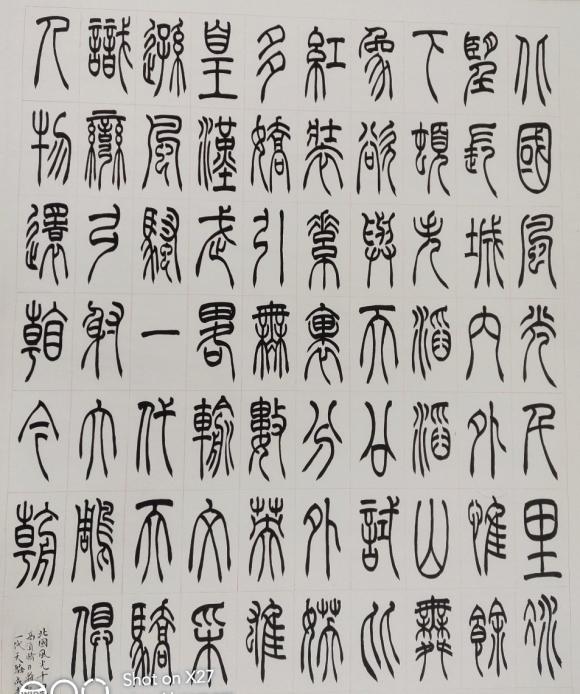 北國風光千里冰
望長城內外惟餘
下頓失滔滔山舞
象欲與天公試比
紅裝素裹分外妖
多嬌引無數英雄
皇漢武略輸文采
遜風騷一代天驕
識彎弓射大雕俱
人物還看今朝
北國風光千
一代天驕成
Shot on X27